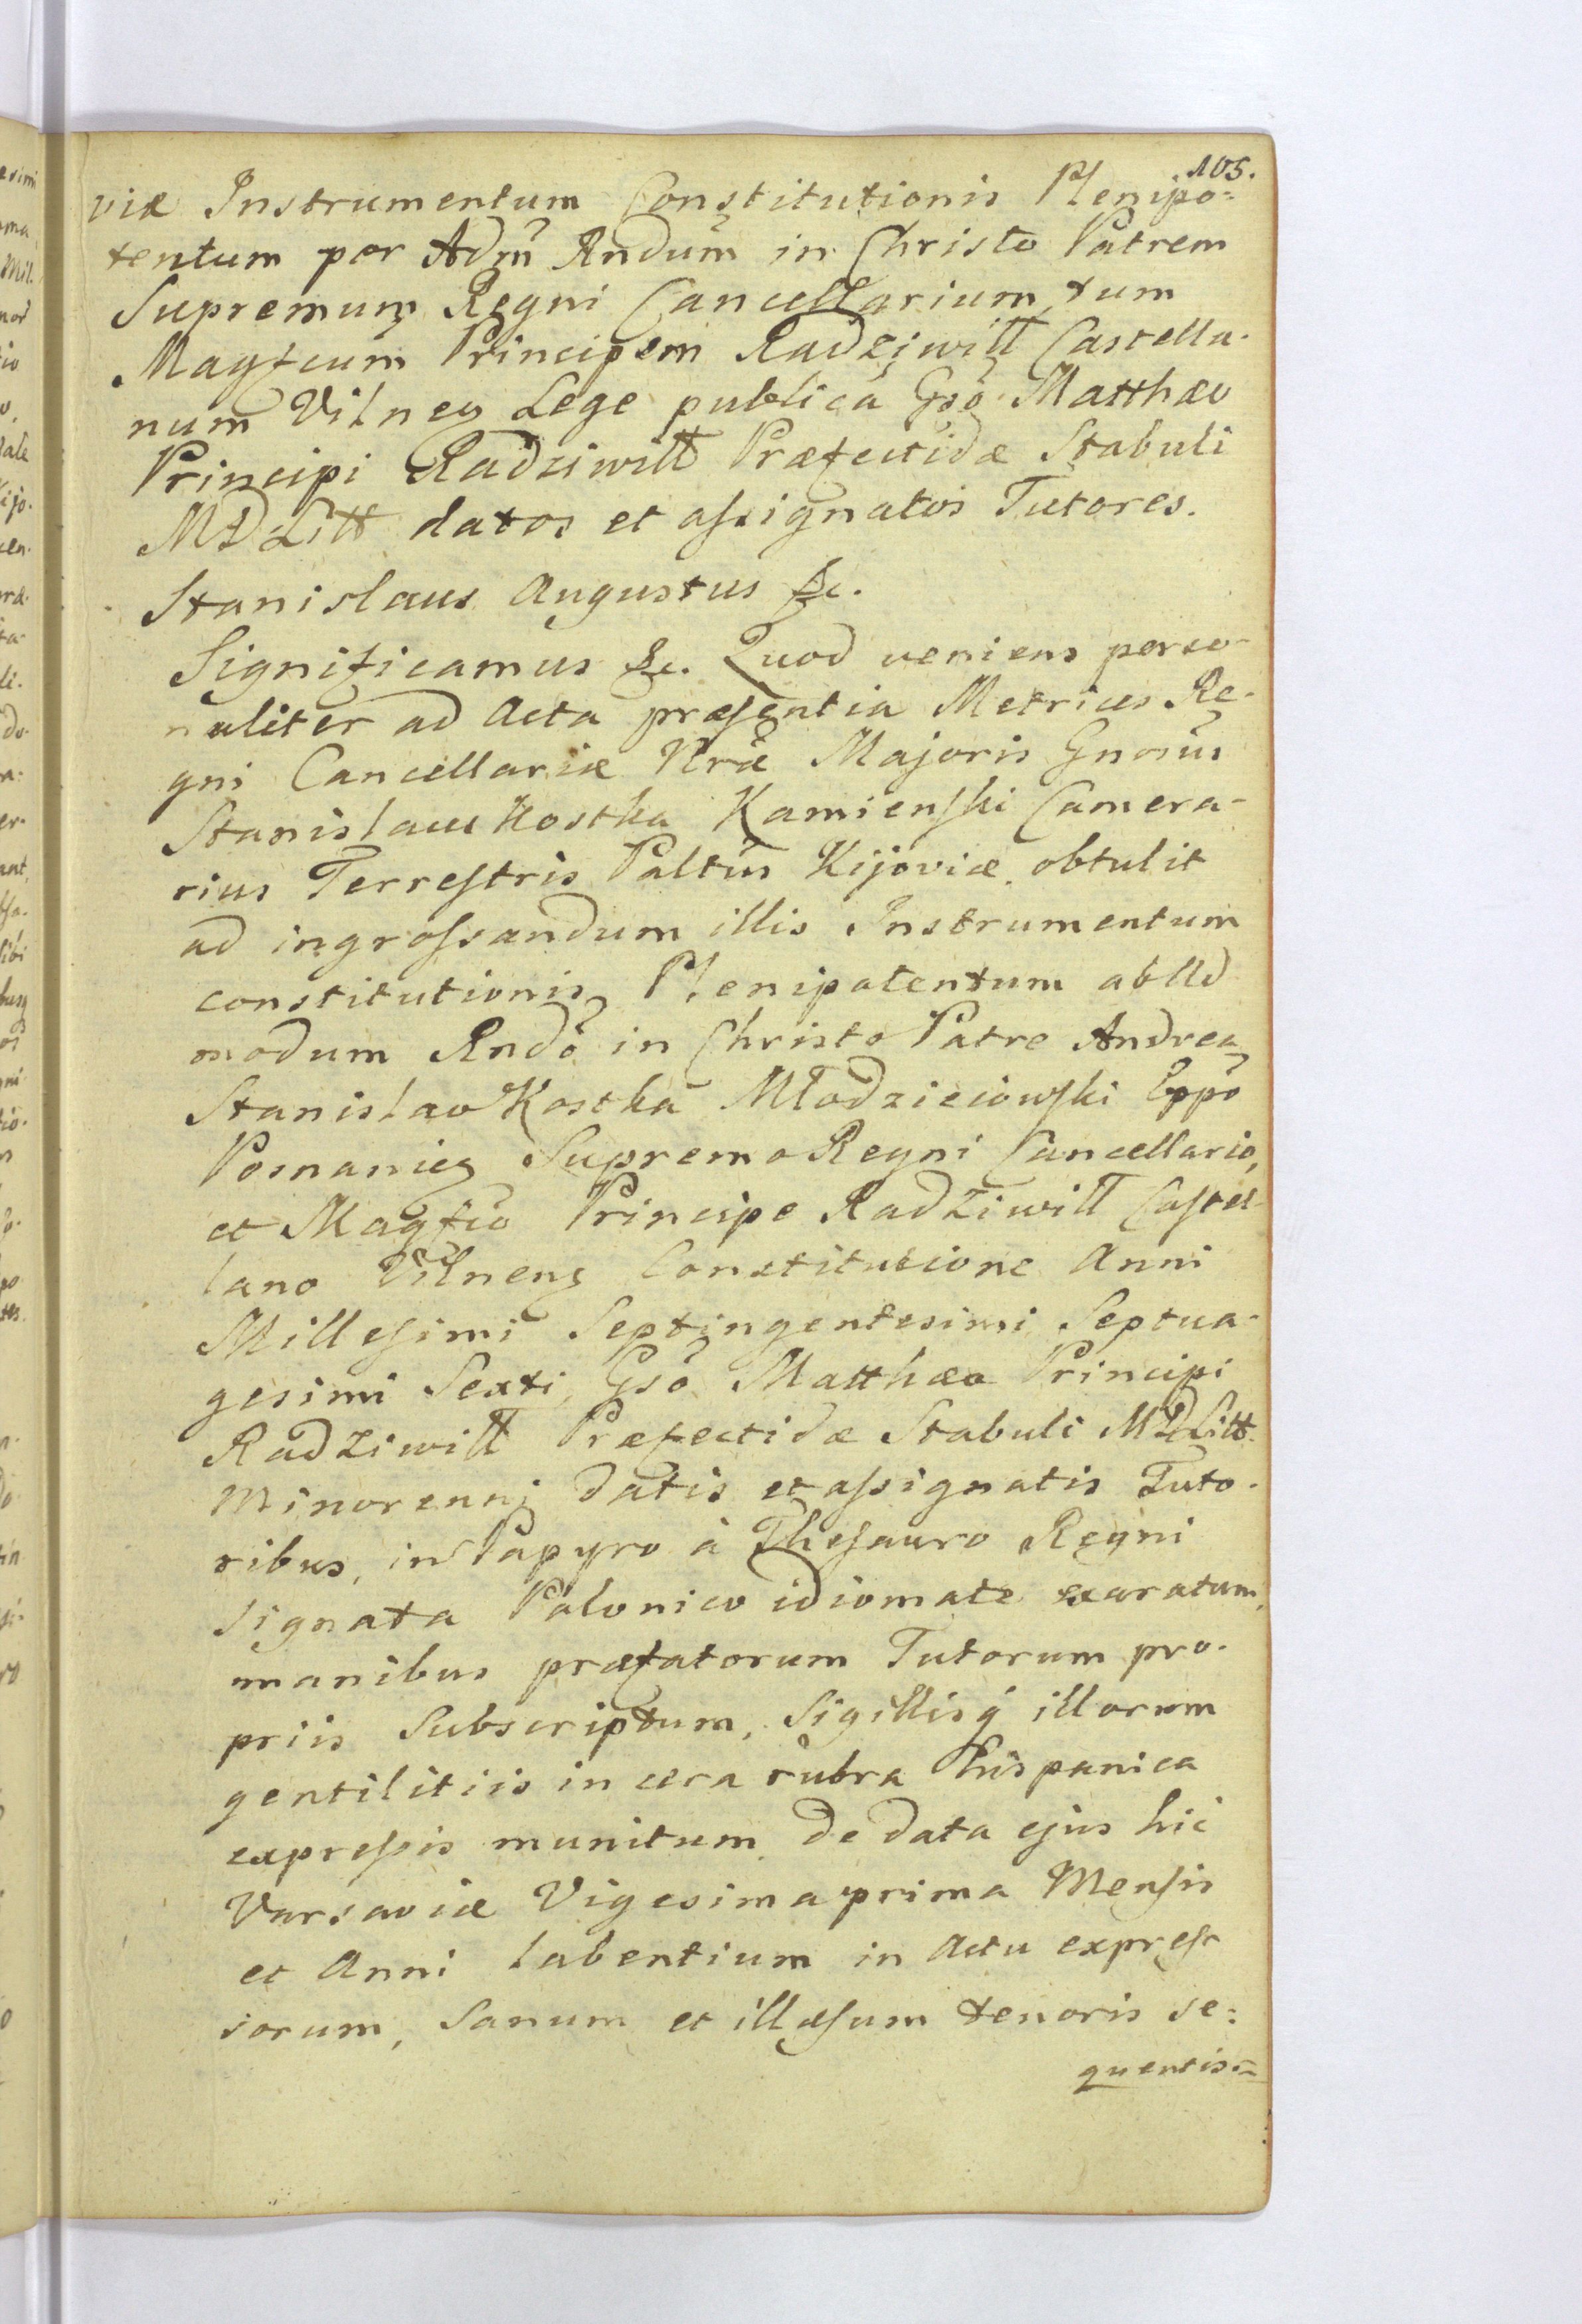 105.
viæ Instrumentum Constitutionis Plenipo=
tentum per Adm̃ Rndum̃ in Christo Patrem
Supremum Regni Cancellarium, tum
Magfcum̃ Principem Radziwiłł Castella-
num Vilneñ Lege publica Gsõ Matthæo
Principi Radziwiłł Præfectidæ Stabuli
MDLitt datos et assignatos Tutores.
Stanislaus Augustus &c.
Significamus &c. Quod veniens perso-
naliter ad Acta præsentia Metrices Re-
gni Cancellariæ Nræ̃ Majoris Gnosus
Stanislaus Kostka Kamienski Camera-
rius Terrestris Paltũs Kijoviæ, obtulit
ad ingrossandum illis Instrumentum
constitutionis Plenipotentum ab Ad
modum Rndõ in Christo Patre Andrea
Stanislao Kostka Młodzieiowski Eppõ
Posnanieñ Supremo Regni Cancellario,
et Magfcõ Principe Radziwiłł Castel-
lano Vilneñ Constitutione Anni
Millesimi Septingentesimi Septua-
gesimi Sexti, Gsõ Matthæo Principi
Radziwiłł Præfectidæ Stabuli MDLitt.
Minorenni datis et assignatis Tuto-
ribus, in Papyro à Thesauro Regni
signata Polonico idiomate exaratum,
manibus præfatorum Tutorum pro-
priis Subscriptum, Sigillisq́ illorum
gentilitiis in cera rubra hispanica
expressis munitum, de data ejus hic
Varsaviæ Vigesima prima Mensis
et Anni labentium in Actu expres-
sorum, Sanum et illæsum tenoris se:
quentis:=